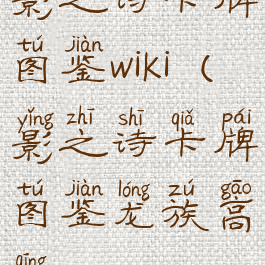 影之诗卡牌
tú jiàn
图鉴wiki（
yǐng zhī shī qiǎ pái
影之诗卡牌
tú jiàn lóng zú gāo
图鉴龙族高
qīng